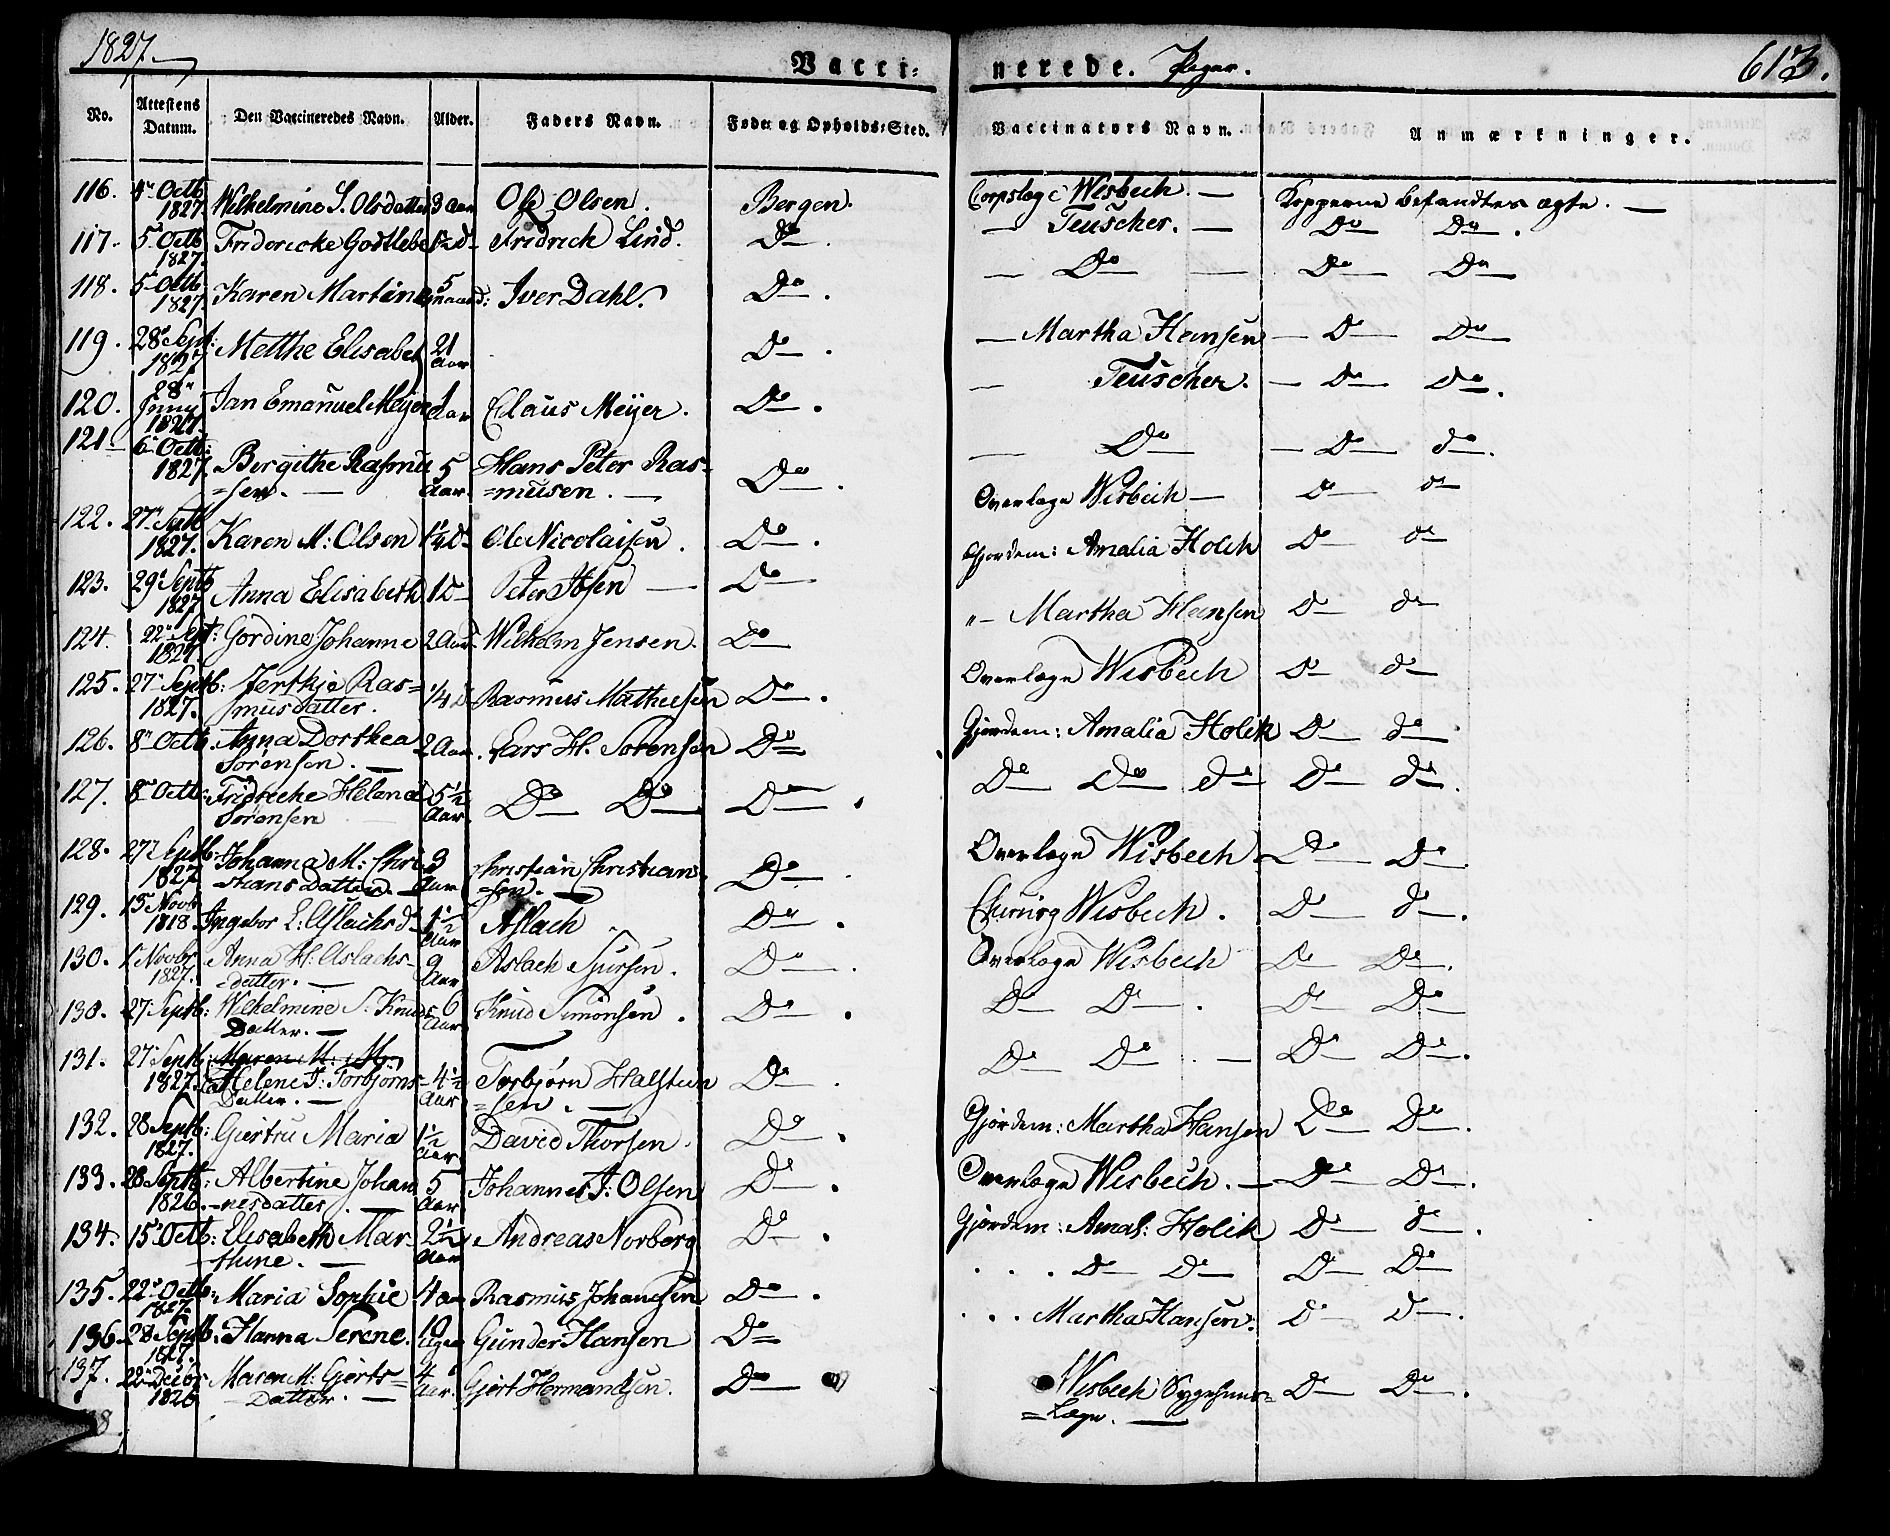 1827.
Vacci=
nerede. Piger.
613.
No.
Attestens Datum.
Den Vaccineredes Navn.
Alder.
Faders Navn.
Føde= og Opholds=Sted.
Vaccinateurs Navn.
Anmærkninger.
116. 4 Octb 1827. Wilhelmine S. Olsdatter 3 Aar Ole Olsen. Bergen. Corpslæge Wisbech. — Kopperne befandtes ægte. —
117. 5 Octb 1827. Fridericke Godtlebe 1½ d— Fridrich Lind. Do. — Teuscher. — Do Do.
118. 5 Octb 1827. Karen Martine 5 maand: Iver Dahl. Do. — Do — Do Do
119. 28 Sept: 1827 Metthe Elisabet 21 Aar Do. — Martha Hansen — Do Do
120. 28 1827. Jan Emanuel Meyer 1 Aar Claus Meÿer. Do. — Teuscher. — Do Do.
121. 6 Octb: 1827. Bergithe Rasmu
=sen. — 5 Aar. Hans Peter Ras=
=musen. — Do. — Do — Do do.
122. 27 Septb 1827. Karen M: Olsen 1¼ D— Ole Nicolaisen. Do. Overlæge Wisbech — Do do
123. 29 Septb 1827 Anna Elisabeth 1 D— Peter Ibsen — Do Gjordem: Amalia Holck Do do
124. 22 Sept: 1827. Gordine Johanne 2 Aar Wilhelm Jensen. Do „— Martha Hansen Do do
125. 27 Septb: 1827. Jertkje Ras=
musdatter. ¼ D Rasmus Mathiesen Do. Overlæge Wisbech Do do
126. 8 Octb. Anna Dorthea
Sørensen. — 2 Aar. Lars H. Sørensen Do Gjordem: Amalia Holck Do do
127. 8 Octb: Fridricke Helena
Sørensen 5½ Aar. Do Do Do. Do Do do Do do.
128. 27 Septb: 1827 Johanna M: Chri
=stians Datter. — 3 Aar Christian Christian=
sen. — Do. Overlæge Wisbech Do Do.
129. 15 Novbr 1818. Ingebor E: Aslachs d— 1½ Aar Aslach Do. Chirurg Wisbech. Do do.
130. 1 Novbr 1827. Anna H. Aslachs=
=datter. — 9 Aar Aslach Sjursen. Do. Overlæge Wisbech Do Do.
130. 27 Septb: Wilhelmine S. Knuds
Datter. — 6 Aar Knud Simonsen. Do. Do Do. Do Do
131. 27 Septb: 1827. Maren M: M
Helene T: Torbjørns=
Datter. — 4½ Aar Torbjørn Halsteen
=sen. — Do. Do Do. — Do Do.
132. 28 Septb: 1827. Gjertru Maria 1½ Aar David Thorsen. Do. Gjordem: Martha Hansen Do Do.
133. 28 Septb: 1826. Albertine Johan
=nesdatter. — 5 Aar Johannes J: Olsen Do. Overlæge Wisbech. — Do Do.
134. 15 Octb: Elisabeth Mar=
thine. — 2½ Aar Andreas Norberg Do. Gjordem: Amal: Holck Do do.
135. 22 Octb: 1827. Maria Sophie 4 Aar Rasmus Johansen Do. . . . Do Do Do Do
136. 28 Septb: 1827. Hanna Serene. 10 Gunder Hansen Do . . . Martha Hansen. Do Do.
137. 22 Decbr 1826 Maren M: Gjerts=
Datter. — 4 Aar. Gjert Hermandsen. Do Wisbech Sygehuus=
=Læge. — Do Do.